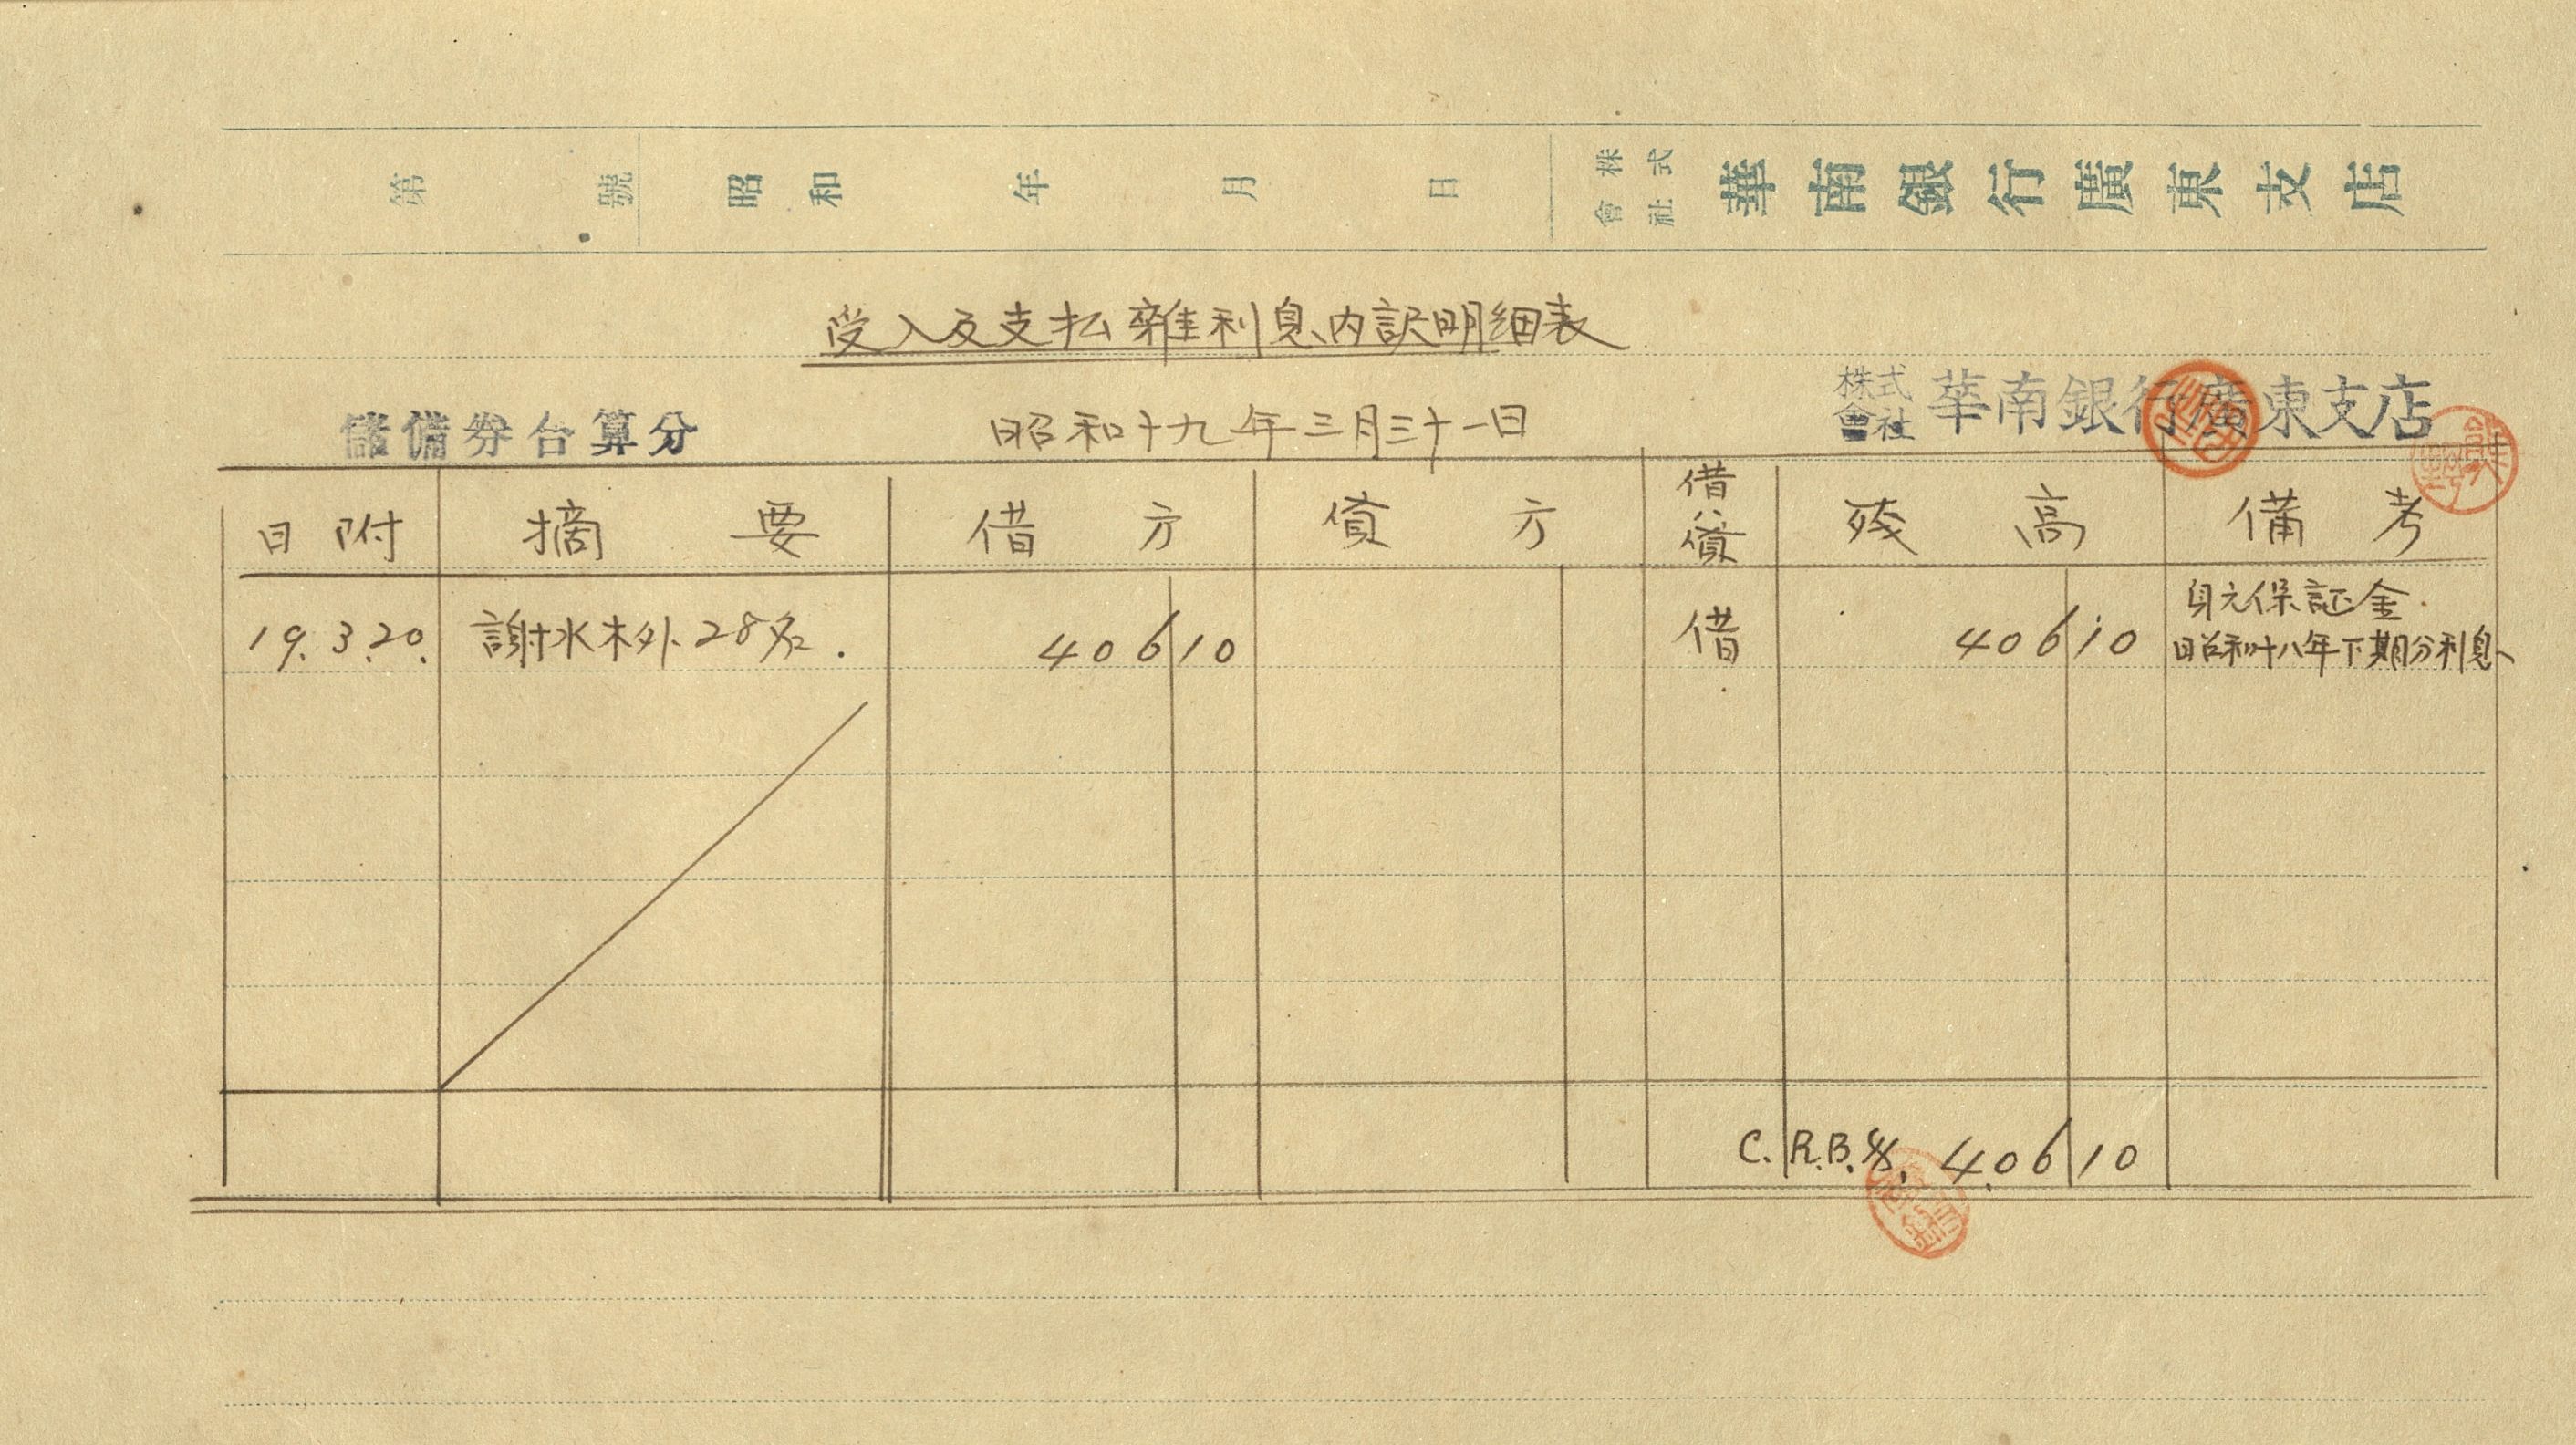 第 號 昭和 年 月 日 株式會社 華南銀行廣東支店
受入及支払雑利息内訳明細表
儲備券合算分 昭和十九年三月三十一日 株式會社 華南銀行廣東支店
日附 摘要 借方 貸方 借又ハ貸 残高 備考
19.3.20. 謝水木外28名. 406 10 借 406 10 身元保証金.
昭和十八年下期分利息
C.R.B.$. 406 10